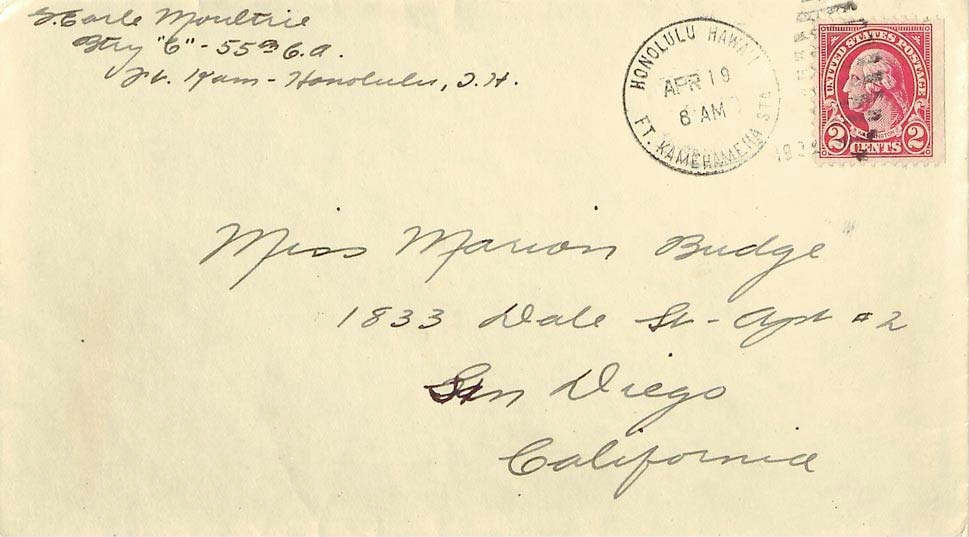 T. Earle Moultrie
Btry "C" - 55th C.A.
Ft. Kam - Honolulu, T.H.
HONOLULU HAWAII
APR 19
6 AM
FT. KAMEHAMEHA STA.
UNITED STATES POSTAGE
WASHINGTON
2 CENTS 2
Miss Marion Budge
1833 Dale St - Apt #2
San Diego
California